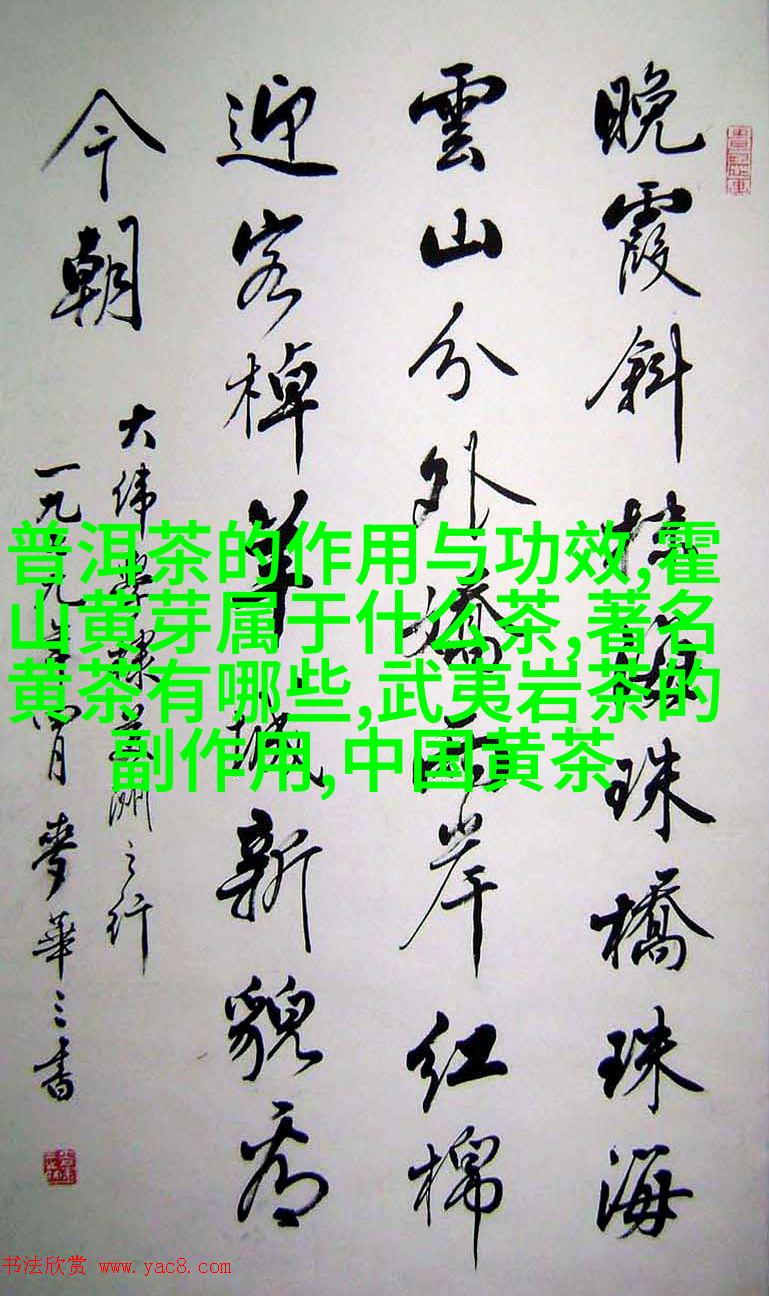 晚霞斜掛海珠橋珠海
雲山分外嬌兩岸紅棉
迎客棹羊城新貌看
今朝
大緯學棣美洲之行
一九 麥華三書
普洱茶的作用与功效,霍
山黄芽属于什么茶,著名
黄茶有哪些,武夷岩茶的
副作用,中国黄茶
书法欣赏 www.yac8.com